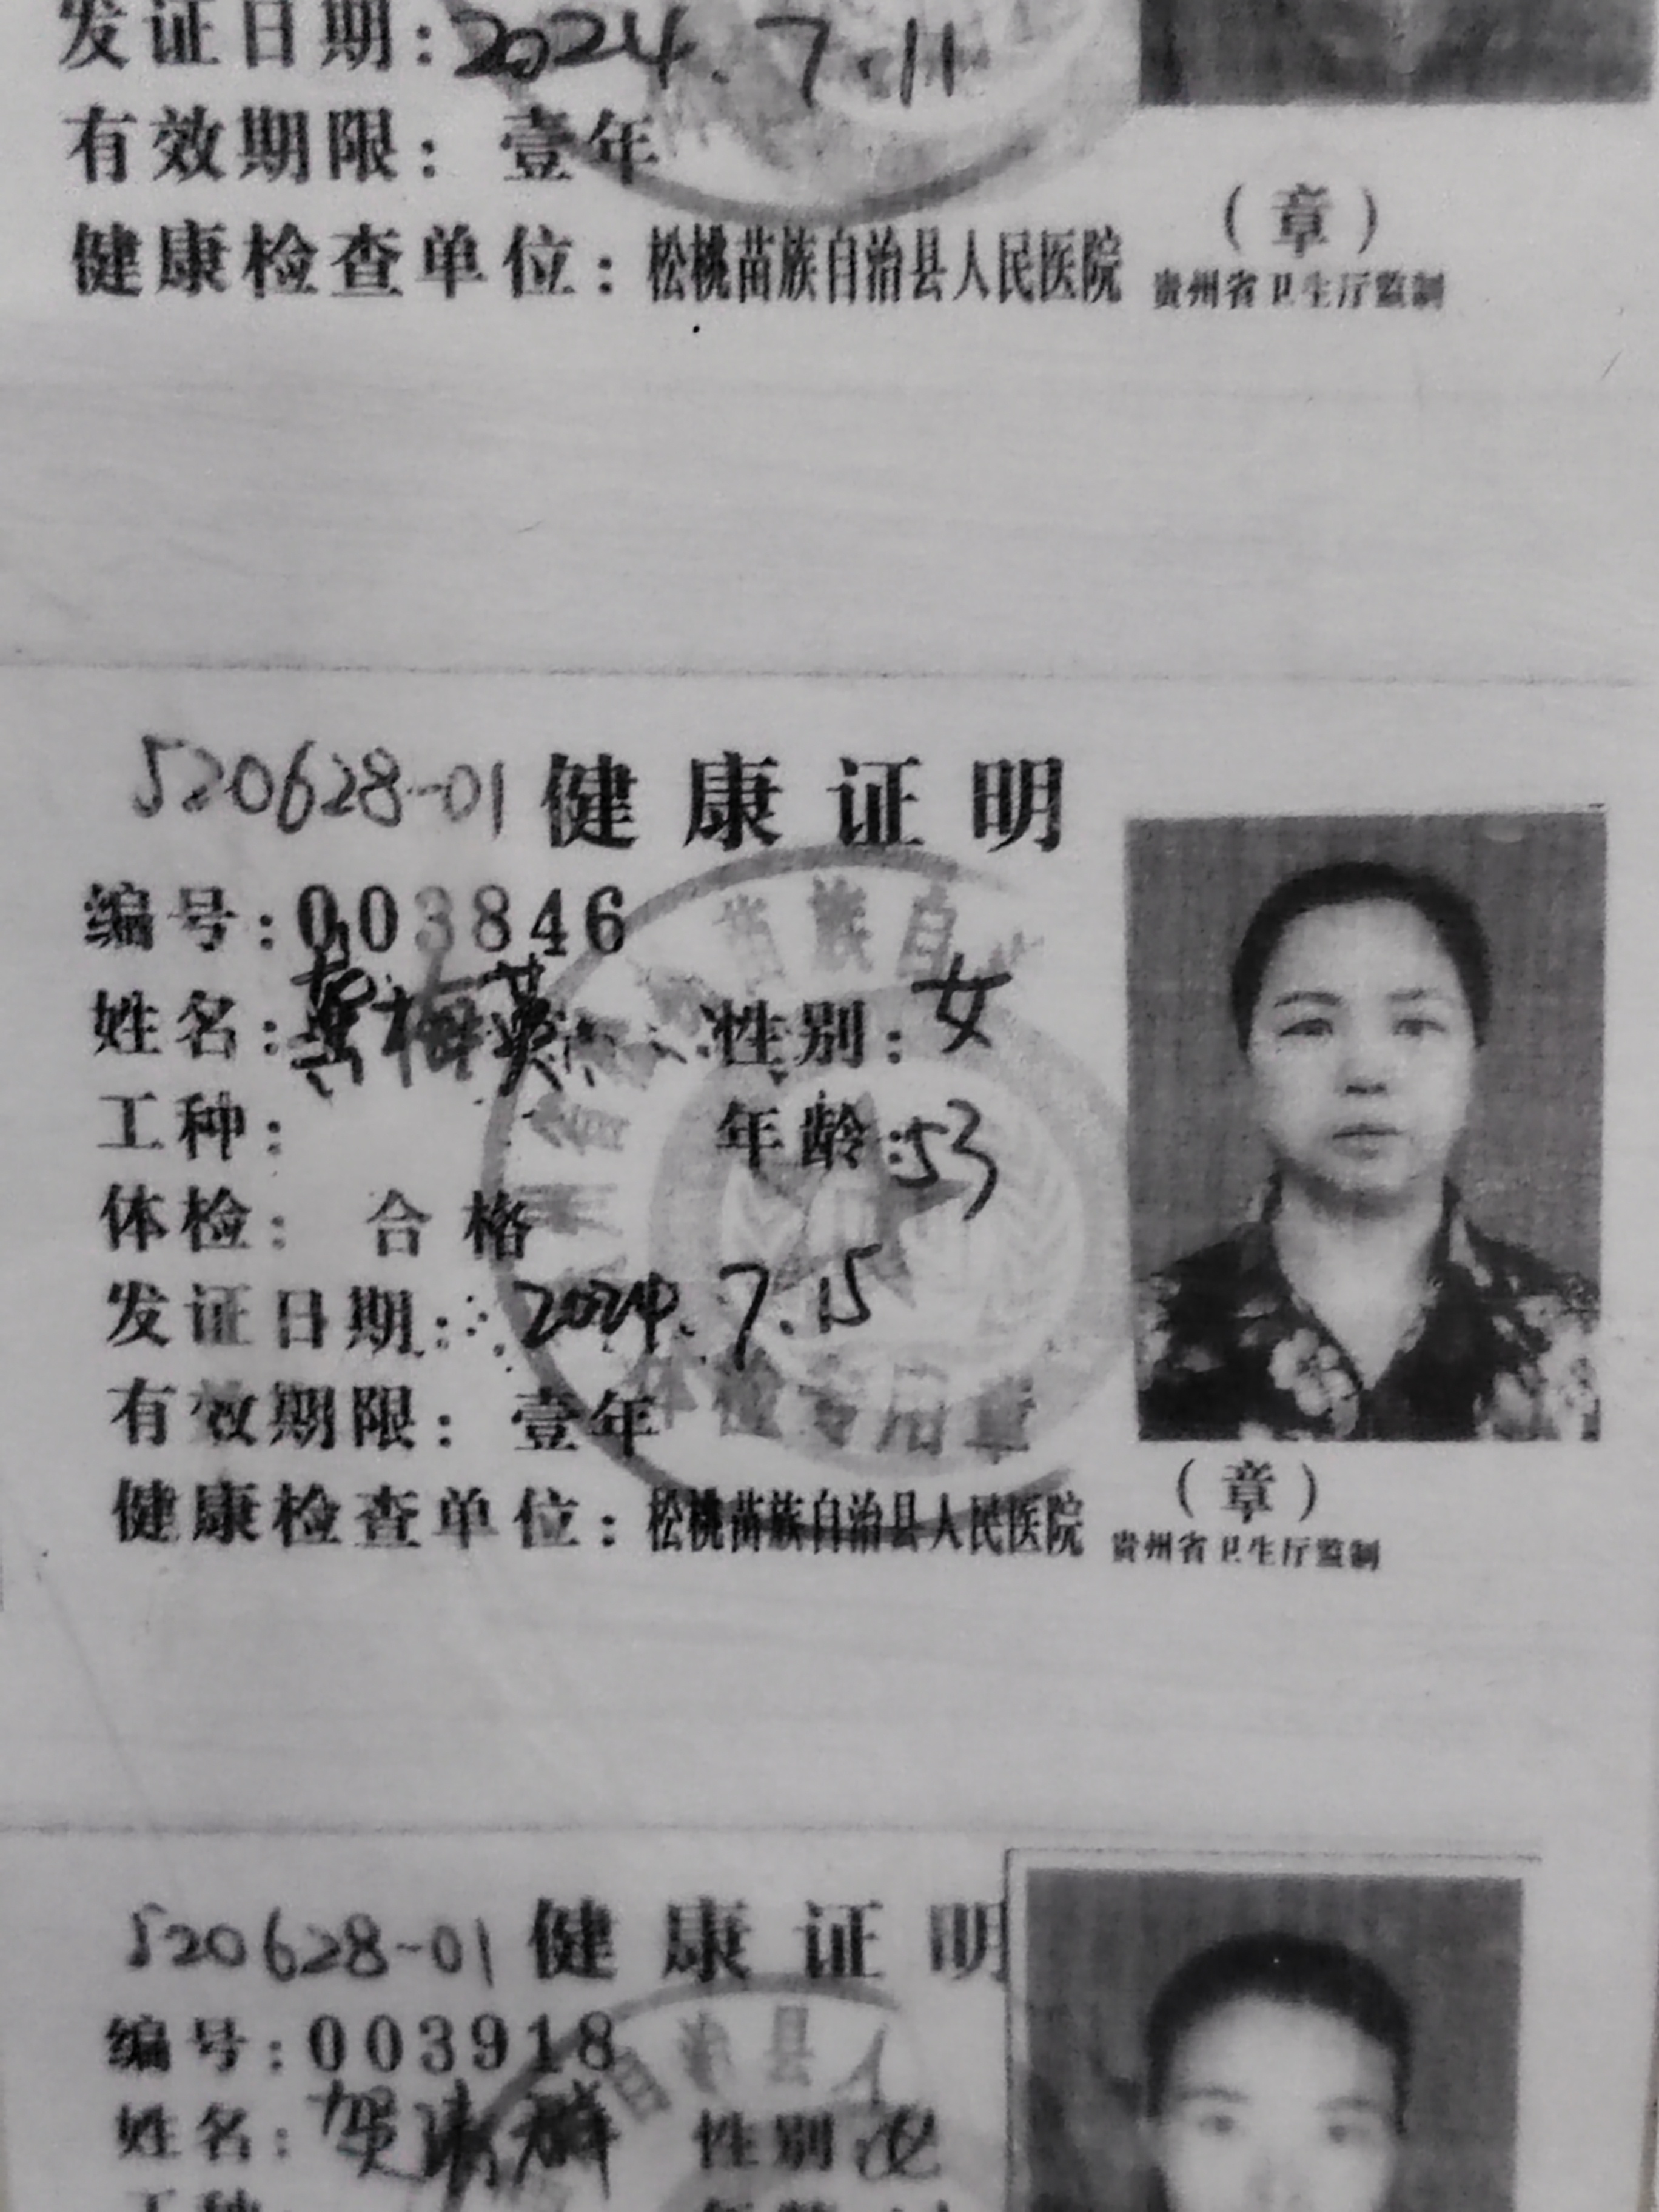 发证日期:2024.7.11
有效期限: 壹年
(章)
健康检查单位: 松桃苗族自治县人民医院 贵州省卫生厅监制
520628-01 健康证明
编号:003846
姓名: 梅英 性别:女
工种: 年龄:53
体检: 合格
发证日期: 2024.7.15
有效期限: 壹年
(章)
健康检查单位: 松桃苗族自治县人民医院 贵州省卫生厅监制
苗族自
体检专用章
520628-01 健康证明
编号:003918
姓名:贺 性别:女
自治县人
工种: